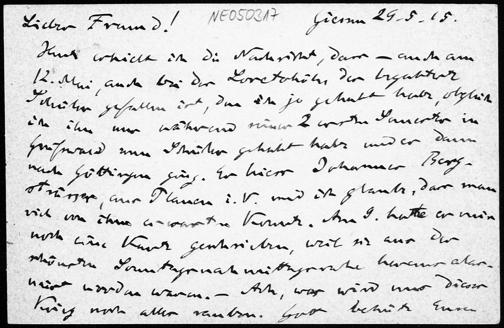 Lieber Freund! NE050317 Giessen 29.5.15.
Heute erhielt ich die Nachricht, dass – auch am
12. Mai, auch bei der Lorettohöhe der begabteste
Schüler gefallen ist, den ich je gehabt habe, obgleich
ich ihn nur während seiner 2 ersten Semester in
Greifswald zum Schüler gehabt habe und er dann
nach Göttingen ging. Er hiess Johannes Berg-
strässer, aus Plauen i. V. und ich glaube, dass man
viel von ihm erwarten konnte. Am 9. hatte er mir
noch eine Karte geschrieben, weil sie aus der
schönsten Sonntagnachmittagsruhe heraus alar-
miert worden waren. – Ach, was wird uns dieser
Krieg noch alles rauben. Gott behüte Euren